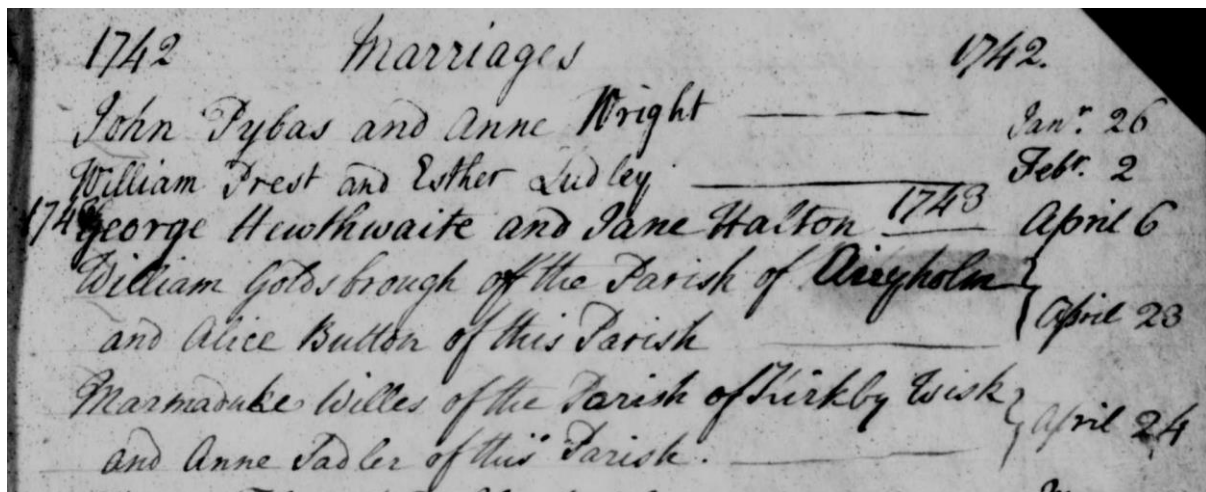 1742 Marriages 1742.
John Pybas and Anne Wright Janr. 26
William Prest and Esther Ludley Febr. 2
George Hewthwaite and Jane Halton 1743 April 6
William Goldsbrough of the Parish of Airyholm
and Alice Button of this Parish April 23
Marmaduke Willes of the Parish of Kirkby Wisk
and Anne Sadler of this Parish. April 24